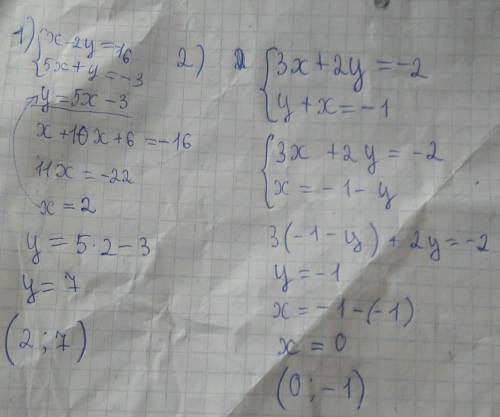 1) { x-2y=-16
5x+y=-3
y=5x-3
x+10x+6=-16
11x=-22
x=2
y=5·2-3
y=7
(2;7)
2) { 3x+2y=-2
y+x=-1
{ 3x+2y=-2
x=-1-y
3(-1-y)+2y=-2
y=-1
x=-1-(-1)
x=0
(0;-1)